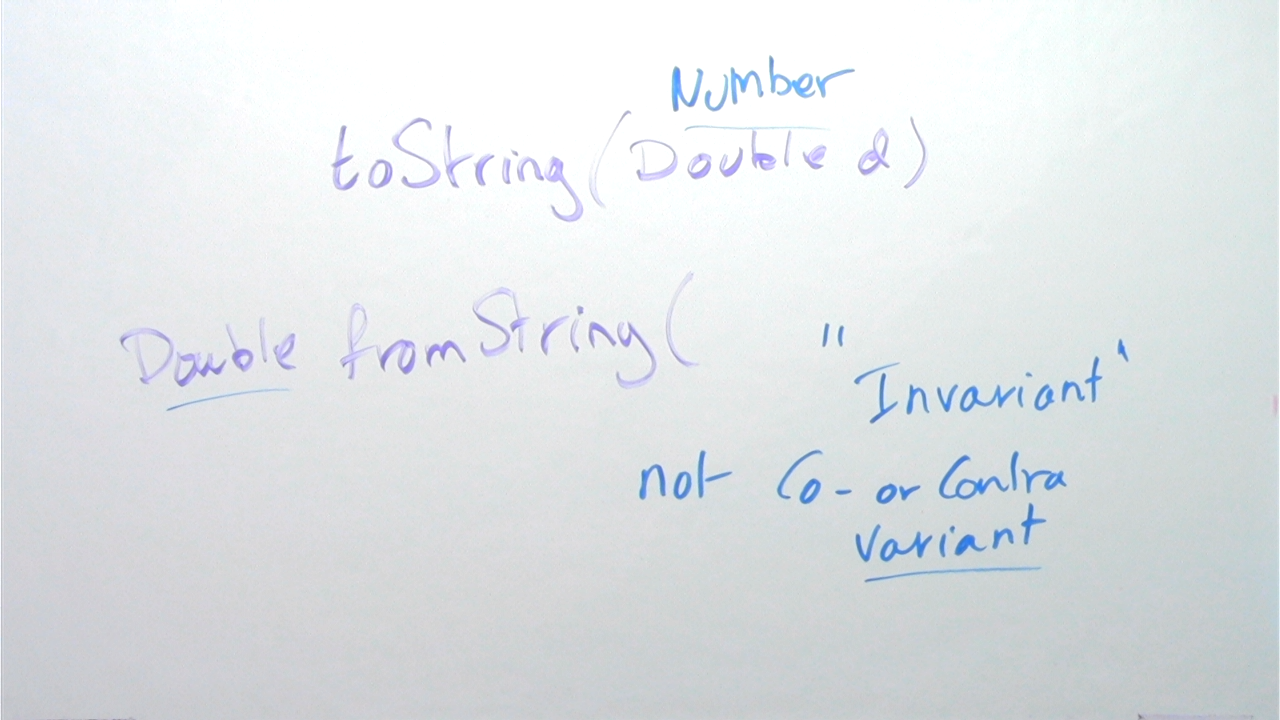 Number
toString(Double d)
Double fromString(
"Invariant"
not Co- or Contra
variant